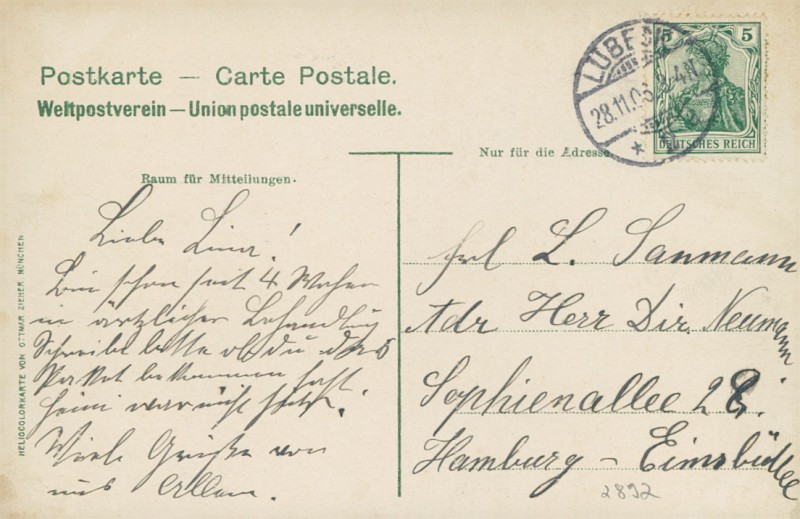 Postkarte — Carte Postale.
Weltpostverein — Union postale universelle.
LÜBECK
28.11.05
5 5
DEUTSCHES REICH
Nur für die Adresse.
Raum für Mitteilungen.
HELIOCOLORKARTE VON OTTMAR ZIEHER, MÜNCHEN
Liebe Lina!
Bin schon seit 4 Wochen
in ärztlicher Behandlung
Schreibe bitte ob du das
Paket bekommen hast
war nicht
Viele Grüße von
uns Allen.
Frl L. Sanmann
Adr Herr Dir. Neumann
Sophienallee 28.
Hamburg - Eimsbüttel
2892